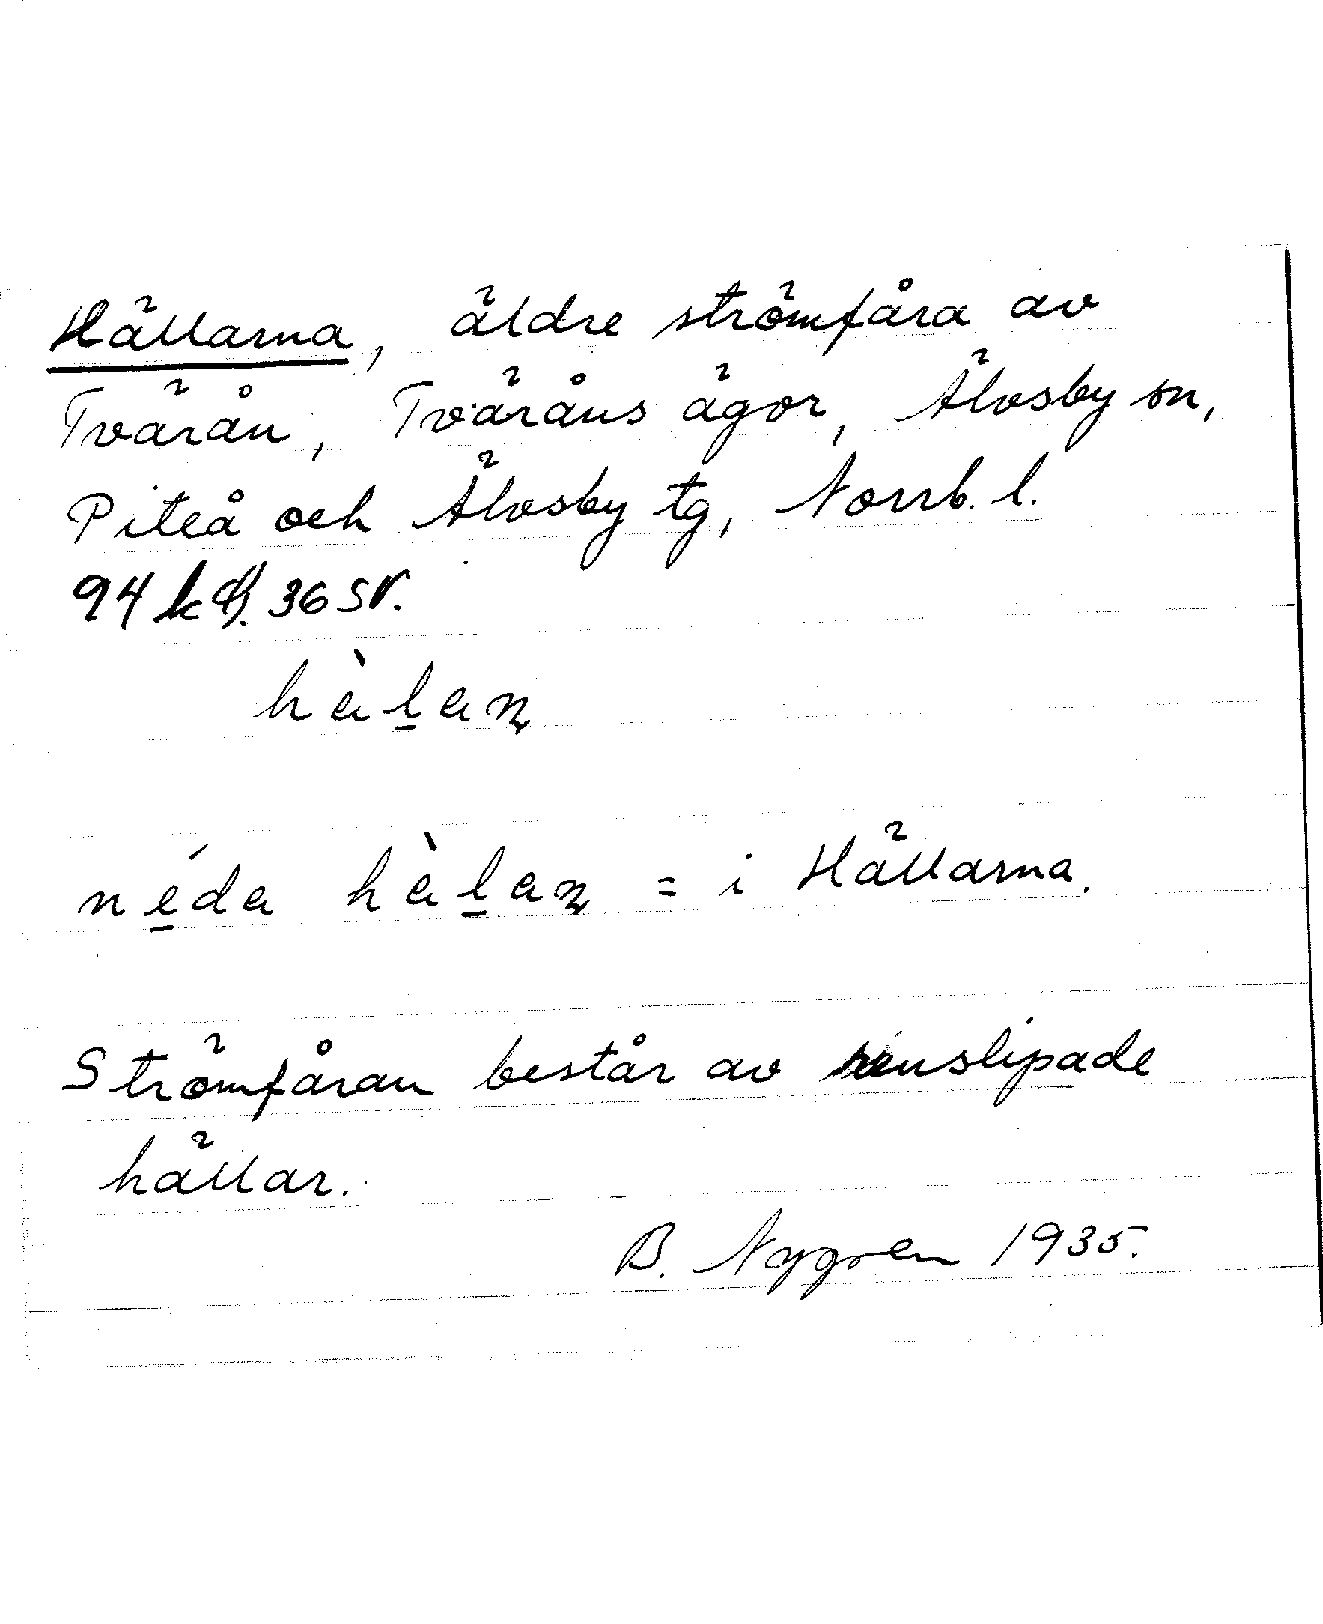 Hällarna, äldre strömfåra av
Tvärån, Tväråns ägor, Älvsby sn,
Piteå och Älvsby tg, Norrb. l.
94 36 SV.
hàl̲aṇ
né̲da hàl̲aṇ = i Hällarna.
Strömfåran består av renslipade
hällar.
B. Nygren 1935.